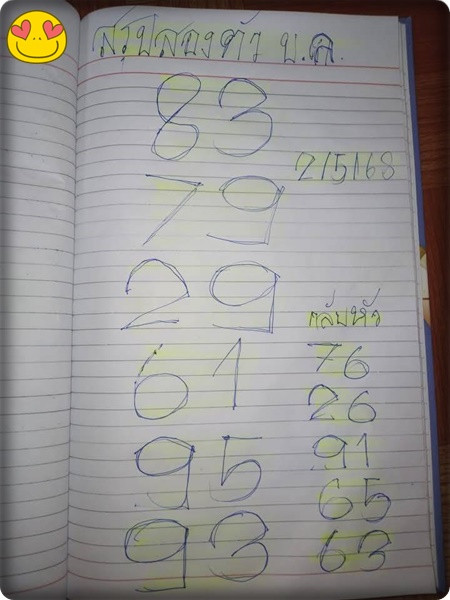 สรุปสองตัว บ.ค.
83
2/5/68
79
29
กลับหัว
61
76
26
95
91
65
93
63